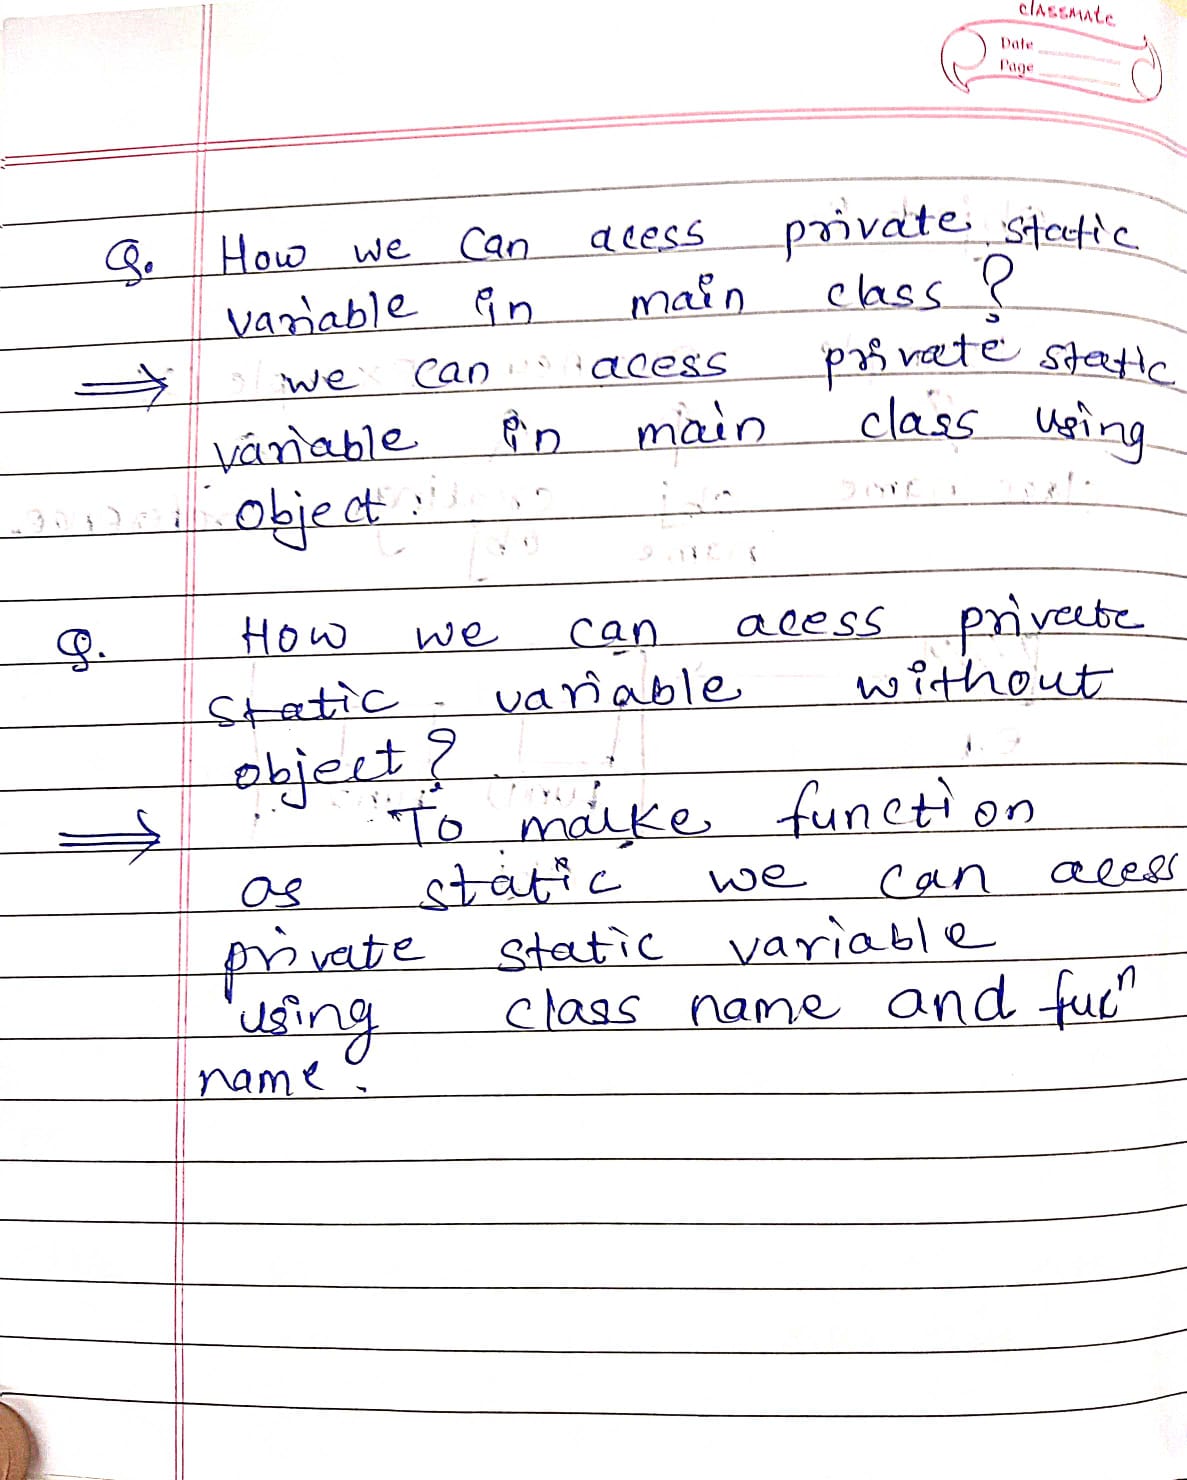 classmate
Date
Page
Q. How we can acess private static
variable in main class?
⇒ we can acess private static
variable in main class using
object.
Q. How we can acess private
static variable without
object?
⇒ To make function
as static we can acess
private static variable
using class name and fucⁿ
name.